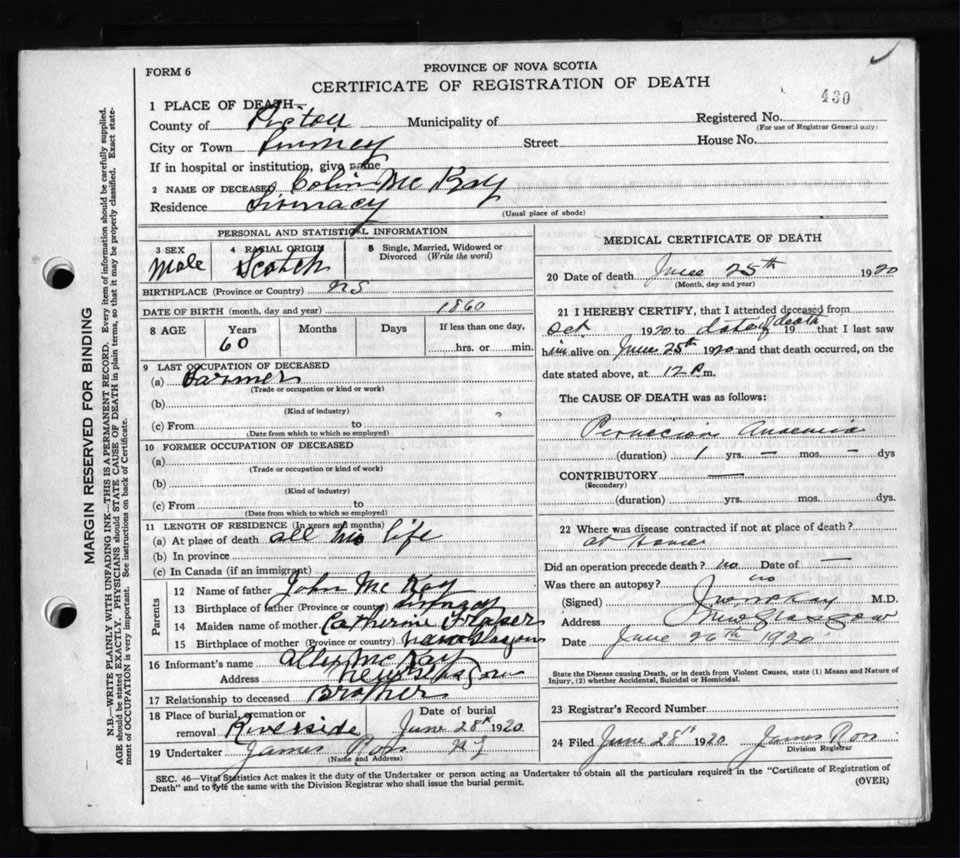 FORM 6
PROVINCE OF NOVA SCOTIA
CERTIFICATE OF REGISTRATION OF DEATH
430
1 PLACE OF DEATH—
County of Pictou Municipality of Registered No.
(For use of Registrar General only)
City or Town Street House No.
If in hospital or institution, give name
2 NAME OF DECEASED Colin Mc Kay
Residence
(Usual place of abode)
PERSONAL AND STATISTICAL INFORMATION
3 SEX Male
4 RACIAL ORIGIN Scotch
5 Single, Married, Widowed or Divorced (Write the word)
BIRTHPLACE (Province or Country) NS
DATE OF BIRTH (month, day and year) 1860
8 AGE Years 60 Months Days If less than one day, hrs. or min.
9 LAST OCCUPATION OF DECEASED
(a) Farmer
(Trade or occupation or kind of work)
(b)
(Kind of industry)
(c) From to
(Date from which to which so employed)
10 FORMER OCCUPATION OF DECEASED
(a)
(Trade or occupation or kind of work)
(b)
(Kind of industry)
(c) From to
(Date from which to which so employed)
11 LENGTH OF RESIDENCE (In years and months)
(a) At place of death all his life
(b) In province
(c) In Canada (if an immigrant)
Parents
12 Name of father John Mc Kay
13 Birthplace of father (Province or county)
14 Maiden name of mother Catherine Fraser
15 Birthplace of mother (Province or county)
16 Informant's name Mc Kay
Address New Glasgow
17 Relationship to deceased Brother
18 Place of burial, cremation or removal Riverside
Date of burial June 28th 1920
19 Undertaker James Ross N G
(Name and Address)
MEDICAL CERTIFICATE OF DEATH
20 Date of death June 25th 1920
(Month, day and year)
21 I HEREBY CERTIFY, that I attended deceased from
Oct 1920 to date of death 19 that I last saw
him alive on June 25th 1920 and that death occurred, on the
date stated above, at 12 m.
The CAUSE OF DEATH was as follows:
Pernicious Anaemia
(duration) 1 yrs. — mos. — dys
CONTRIBUTORY —
(Secondary)
(duration) yrs. mos. dys.
22 Where was disease contracted if not at place of death?
at home
Did an operation precede death? no Date of —
Was there an autopsy? no
(Signed) M.D.
Address New Glasgow
Date June 26th 1920
State the Disease causing Death, or in Death from Violent Causes, state (1) Means and Nature of
Injury, (2) whether Accidental, Suicidal or Homicidal.
23 Registrar's Record Number
24 Filed June 28th 1920 James Ross
Division Registrar
SEC. 46—Vital Statistics Act makes it the duty of the Undertaker or person acting as Undertaker to obtain all the particulars required in the "Certificate of Registration of
Death" and to file the same with the Division Registrar who shall issue the burial permit.
(OVER)
MARGIN RESERVED FOR BINDING
N.B.—WRITE PLAINLY WITH UNFADING INK—THIS IS A PERMANENT RECORD. Every item of information should be carefully supplied.
AGE should be stated EXACTLY. PHYSICIANS should STATE CAUSE OF DEATH in plain terms, so that it may be properly classified. Exact state-
ment of OCCUPATION is very important. See instructions on back of Certificate.